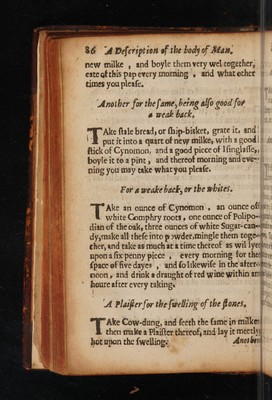 86 A Description of the body of Man.
new milke , and boyle them very wel together,
eate of this pap every morning , and what other
times you please.
Another for the same, being also good for
a weak back.
TAke stale bread, or ship-bisket, grate it, and
put it into a quart of new milke, with a good
stick of Cynomon, and a good piece of Isinglasse,
boyle it to a pint, and thereof morning and eve-
ning you may take what you please.
For a weake back, or the whites.
TAke an ounce of Cynomon , an ounce of
white Comphry roots, one ounce of Polipo-
dian of the oak, three ounces of white Sugar-can-
dy, make all these into powder, mingle them toge-
ther, and take as much at a time thereof as wil lye
upon a six penny piece , every morning for the
space of five dayes , and so likewise in the after-
noon, and drink a draught of red wine within an
houre after every taking.
A Plaister for the swelling of the stones.
TAke Cow-dung, and seeth the same in milke
then make a Plaister thereof, and lay it meetly
hot upon the swelling.
Another